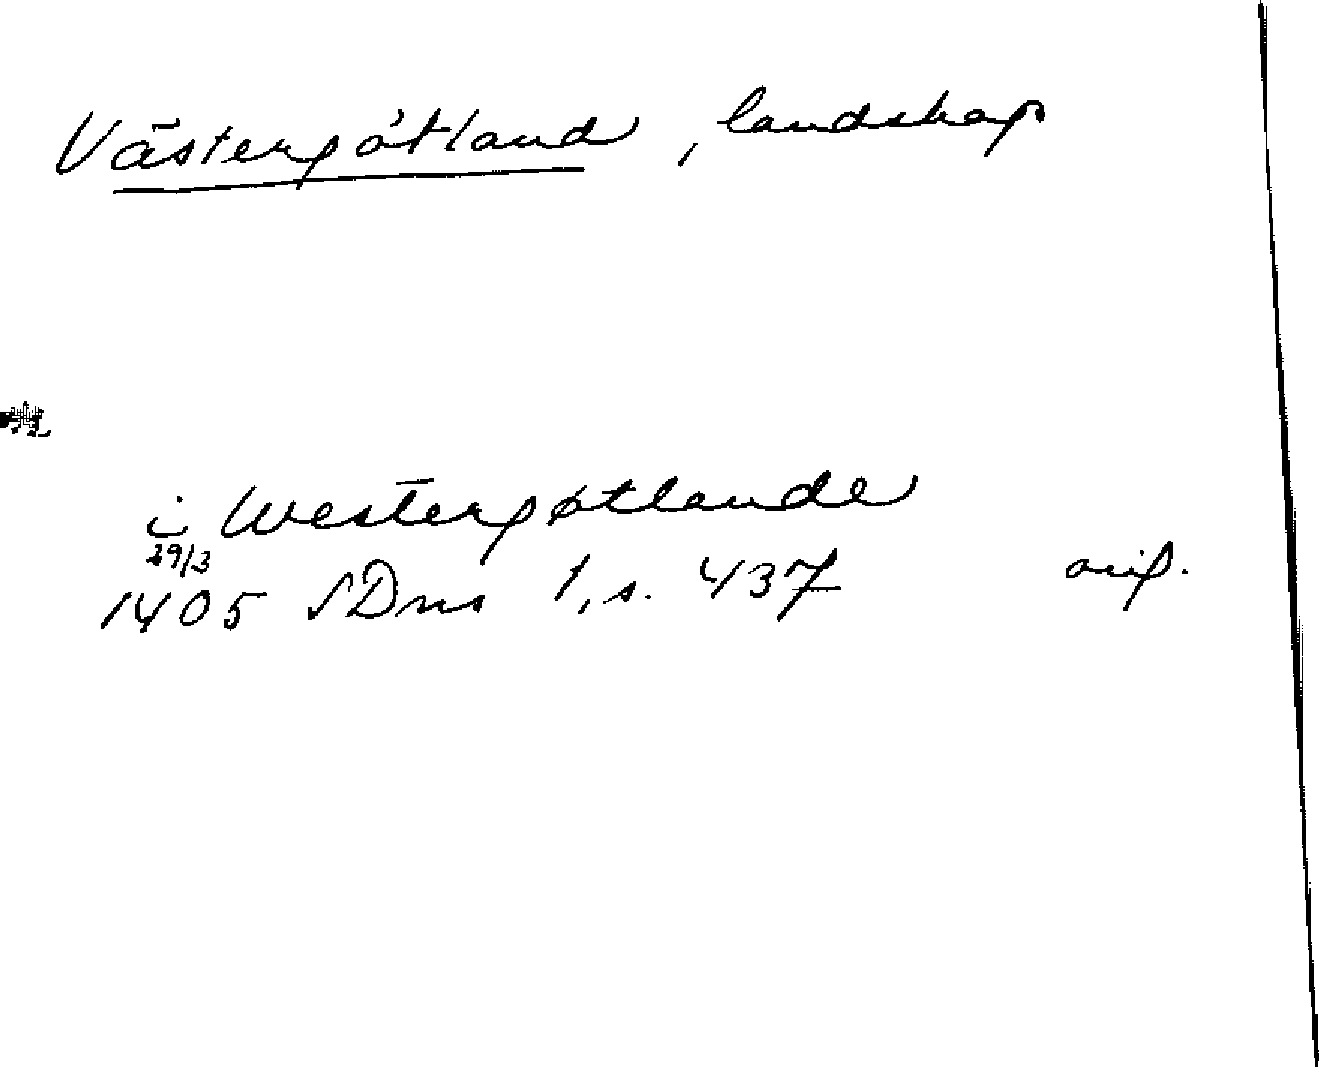 Västergötland, landskap
i Westergøtlande
29/3
1405 SDns 1, s. 437 orig.